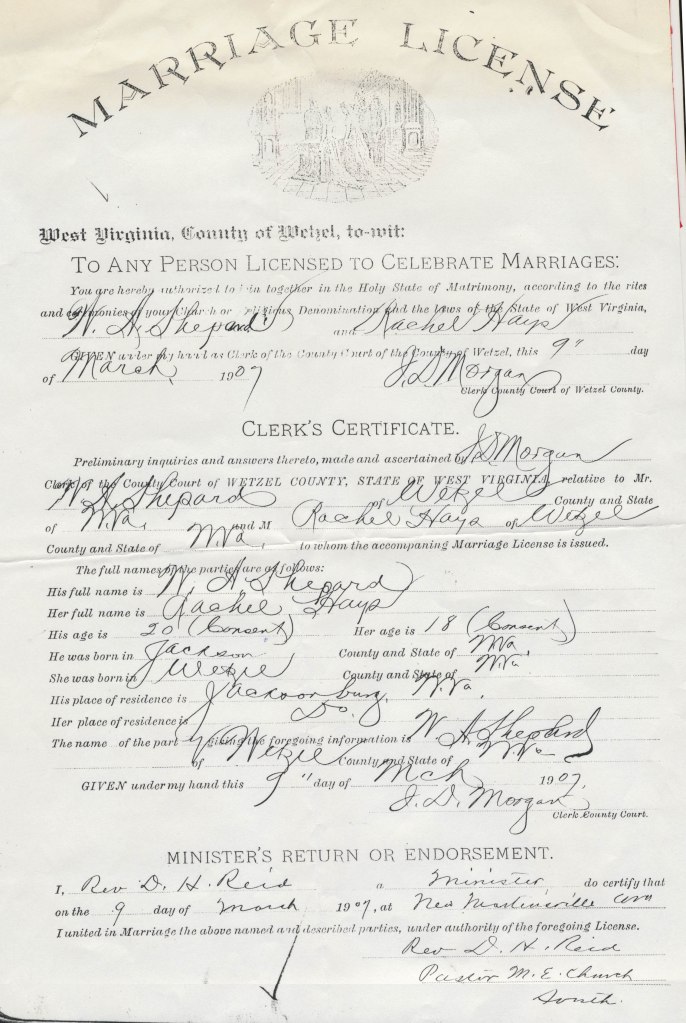 MARRIAGE LICENSE
West Virginia, County of Wetzel, to-wit:
TO ANY PERSON LICENSED TO CELEBRATE MARRIAGES:
You are hereby authorized to join together in the Holy State of Matrimony, according to the rites
and ceremonies of your Church or religious Denomination and the laws of the State of West Virginia,
W. A. Shepard and Rachel Hays
GIVEN under my hand as Clerk of the County Court of the County of Wetzel, this 9" day
of March, 1907 J. D. Morgan
Clerk County Court of Wetzel County.
CLERK'S CERTIFICATE.
Preliminary inquiries and answers thereto, made and ascertained by J. D. Morgan
Clerk of the County Court of WETZEL COUNTY, STATE OF WEST VIRGINIA, relative to Mr.
W. A. Shepard of Wetzel County and State
of W.Va. and M Rachel Hays of Wetzel
County and State of W.Va. to whom the accompaning Marriage License is issued.
The full names of the parties are as follows:
His full name is W. A. Shepard
Her full name is Rachel Hays
His age is 20 (Consent) Her age is 18 (Consent)
He was born in Jackson County and State of W.Va.
She was born in Wetzel County and State of W.Va.
His place of residence is Jacksonburg, W.Va.
Her place of residence is Do.
The name of the party giving the foregoing information is W. A. Shepard
of Wetzel County and State of W.Va
GIVEN under my hand this 9" day of Mch 1907.
J. D. Morgan
Clerk County Court.
MINISTER'S RETURN OR ENDORSEMENT.
I, Rev D. H. Reid a Minister, do certify that
on the 9 day of March 1907, at New Martinsville
I united in Marriage the above named and described parties, under authority of the foregoing License.
Rev D. H. Reid
Pastor M. E. Church
South.